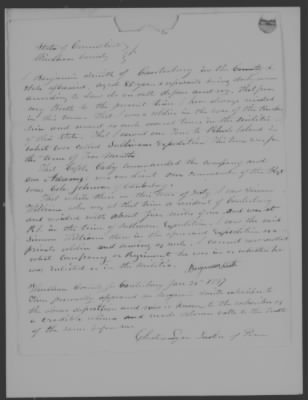 State of Connecticut
Windham County } ss.
I Benjamin Smith of Canterbury in the County &
State aforesaid, aged 80 years & upwards being duly sworn
according to Law do on oath depose and say, that from
my Birth to the present time I have always resided
in this Town. That I was a Soldier in the war of the Revolu-
tion and went several times in the militia
of this State. That I served one Tour to Rhode Island in
what was called Sullivans Expedition This Tour was for
the term of two Months
That Capt. Cady Commanded the Company and
one Adams was our Lieut. our commander of the Reg-
was Colo Johnson of Canterbury.
That while there in this Tour of duty, I saw Simeon
Williams who was at that time a resident of Canterbury
and resided with about mile from and was at
R.I. in the time of Sullivans Expedition. I saw the said
Simeon Williams there in the aforesaid Expedition as a
private soldier and serving as such. I cannot now recollect
what Company or Regiment he was in or whether he
was enlisted or in the militia.
Benjamin Smith
Windham County ss Canterbury Jan 20th 1837
Then personally appeared Benjamin Smith subscriber to
the above deposition and well known to the subscriber as
a credible witness and made solemn oath to the truth
of the same before me
Justice of Peace